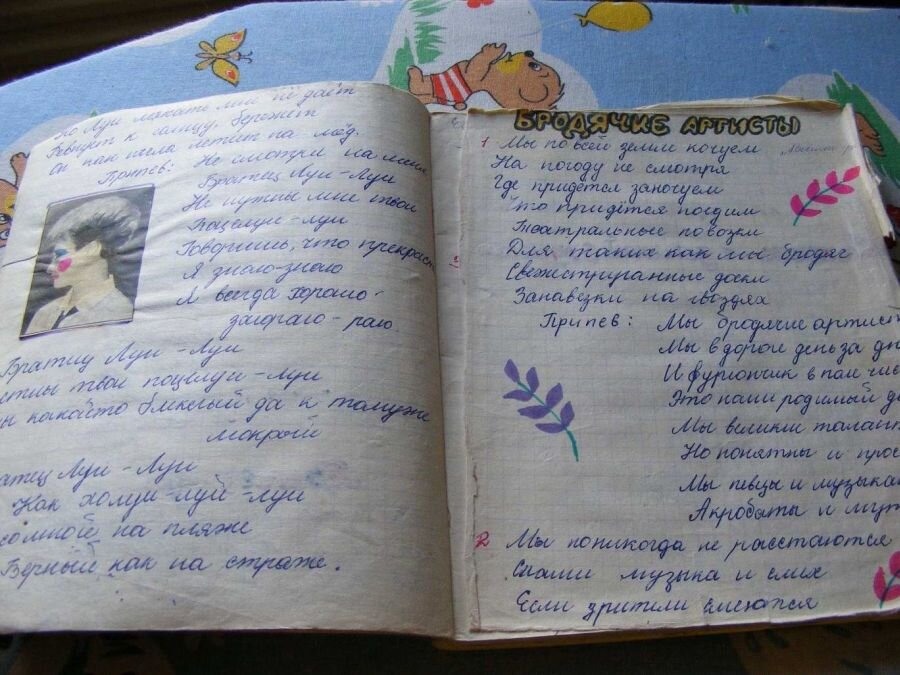 Но Луи лежать мне не даёт
Ревнует к солнцу, бережёт
Он как пчела летит на мёд.
Припев: Не смотри на меня
Братец Луи-Луи
Не нужны мне твои
Поцелуи-луи
Говоришь, что прекрасн
Я знаю-знаю
Я всегда хорошо-
загораю-раю.
Братец Луи-Луи
твои поцелуи-луи
ты какойто блеклый да к томуже
мокрый
атец Луи-Луи
Как холуи-луй-луи
сомной на пляже
Верный как на страже.
БРОДЯЧИЕ АРТИСТЫ
1 Мы по всей земли кочуем
На погоду не смотря
Где придется заночуем
Что придётся поедим
Театральные повозки
Для таких как мы бродяг
Свежеструганные доски
Занавезки на гвоздях
Припев: Мы бродячие артист
Мы в дороге день за дн
И фургончик в пол чис
Это наш родимый д
Мы великие талант
Но понятны и прос
Мы певцы и музыка
Акробаты и шут
2 Мы поникогда не расстаются
Снами музыка и смих
Если зрители смеются